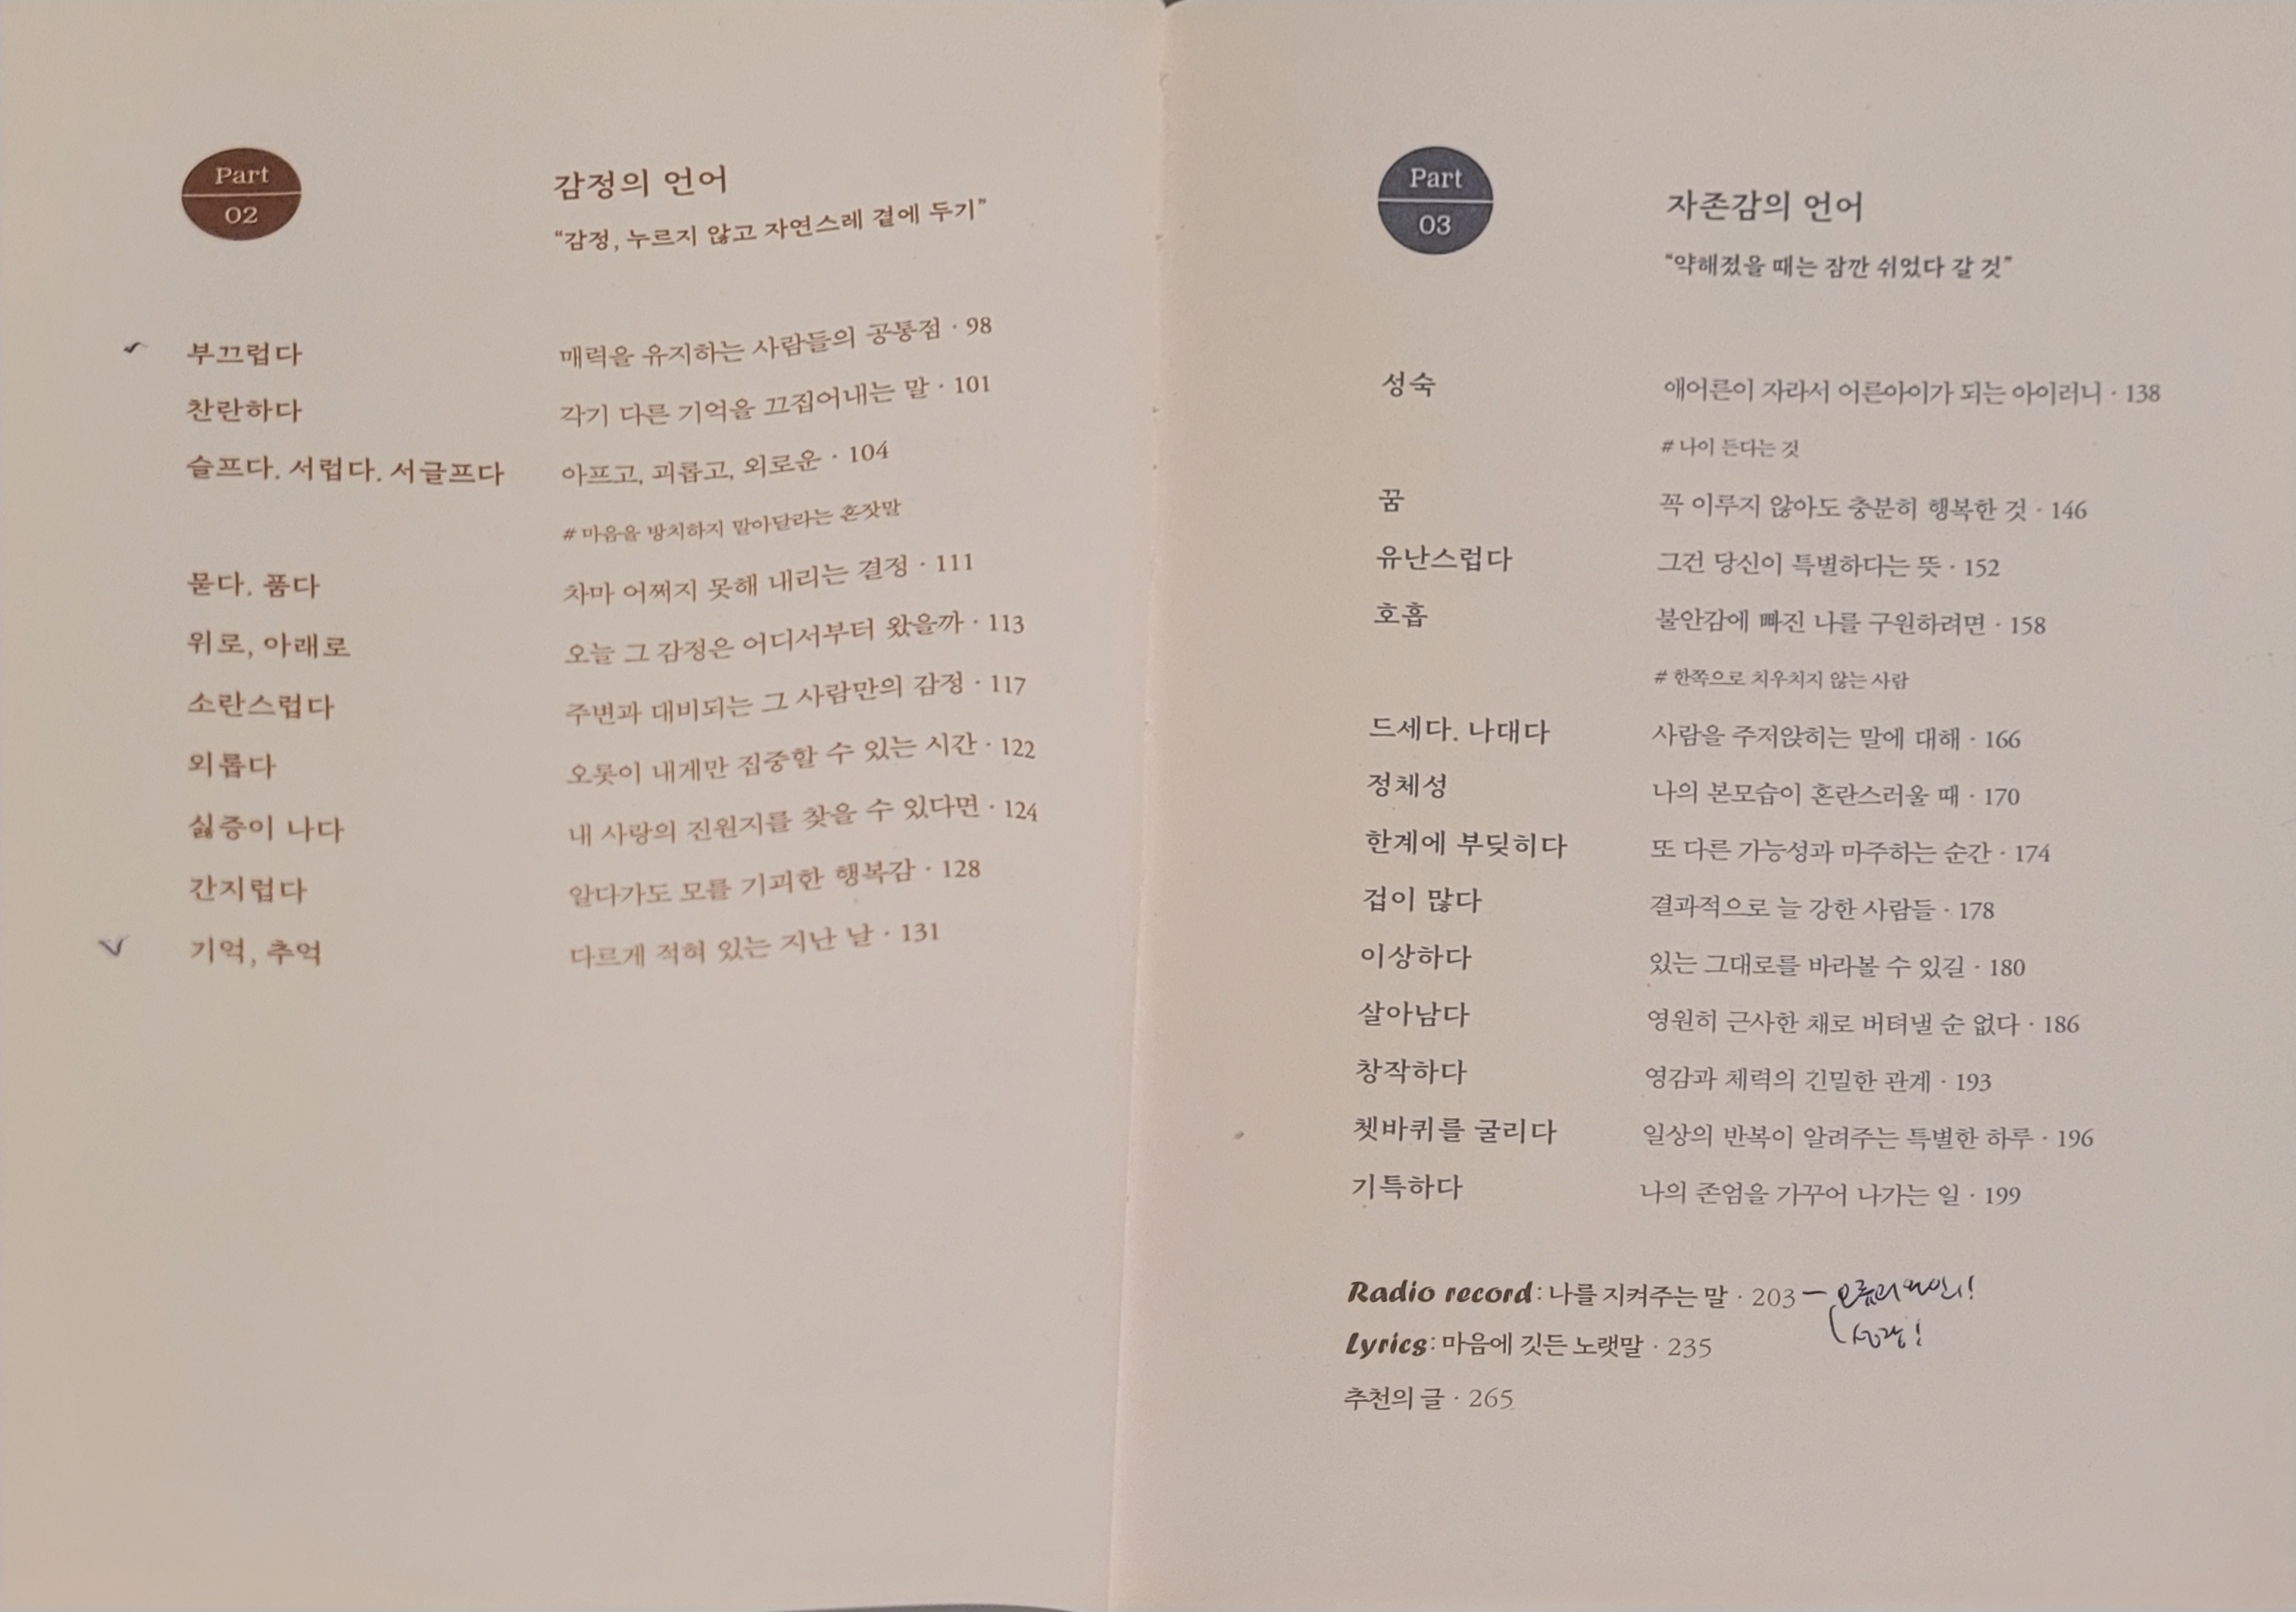 Part
02
감정의 언어
“감정, 누르지 않고 자연스레 곁에 두기”
부끄럽다 매력을 유지하는 사람들의 공통점 · 98
찬란하다 각기 다른 기억을 끄집어내는 말 · 101
슬프다. 서럽다. 서글프다 아프고, 괴롭고, 외로운 · 104
# 마음을 방치하지 말아달라는 혼잣말
묻다. 품다 차마 어쩌지 못해 내리는 결정 · 111
위로, 아래로 오늘 그 감정은 어디서부터 왔을까 · 113
소란스럽다 주변과 대비되는 그 사람만의 감정 · 117
외롭다 오롯이 내게만 집중할 수 있는 시간 · 122
싫증이 나다 내 사랑의 진원지를 찾을 수 있다면 · 124
간지럽다 알다가도 모를 기괴한 행복감 · 128
기억, 추억 다르게 적혀 있는 지난 날 · 131
Part
03
자존감의 언어
“약해졌을 때는 잠깐 쉬었다 갈 것”
성숙 애어른이 자라서 어른아이가 되는 아이러니 · 138
# 나이 든다는 것
꿈 꼭 이루지 않아도 충분히 행복한 것 · 146
유난스럽다 그건 당신이 특별하다는 뜻 · 152
호흡 불안감에 빠진 나를 구원하려면 · 158
# 한쪽으로 치우치지 않는 사람
드세다. 나대다 사람을 주저앉히는 말에 대해 · 166
정체성 나의 본모습이 혼란스러울 때 · 170
한계에 부딪히다 또 다른 가능성과 마주하는 순간 · 174
겁이 많다 결과적으로 늘 강한 사람들 · 178
이상하다 있는 그대로를 바라볼 수 있길 · 180
살아남다 영원히 근사한 채로 버텨낼 순 없다 · 186
창작하다 영감과 체력의 긴밀한 관계 · 193
쳇바퀴를 굴리다 일상의 반복이 알려주는 특별한 하루 · 196
기특하다 나의 존엄을 가꾸어 나가는 일 · 199
Radio record : 나를 지켜주는 말 · 203
Lyrics : 마음에 깃든 노랫말 · 235
추천의 글 · 265